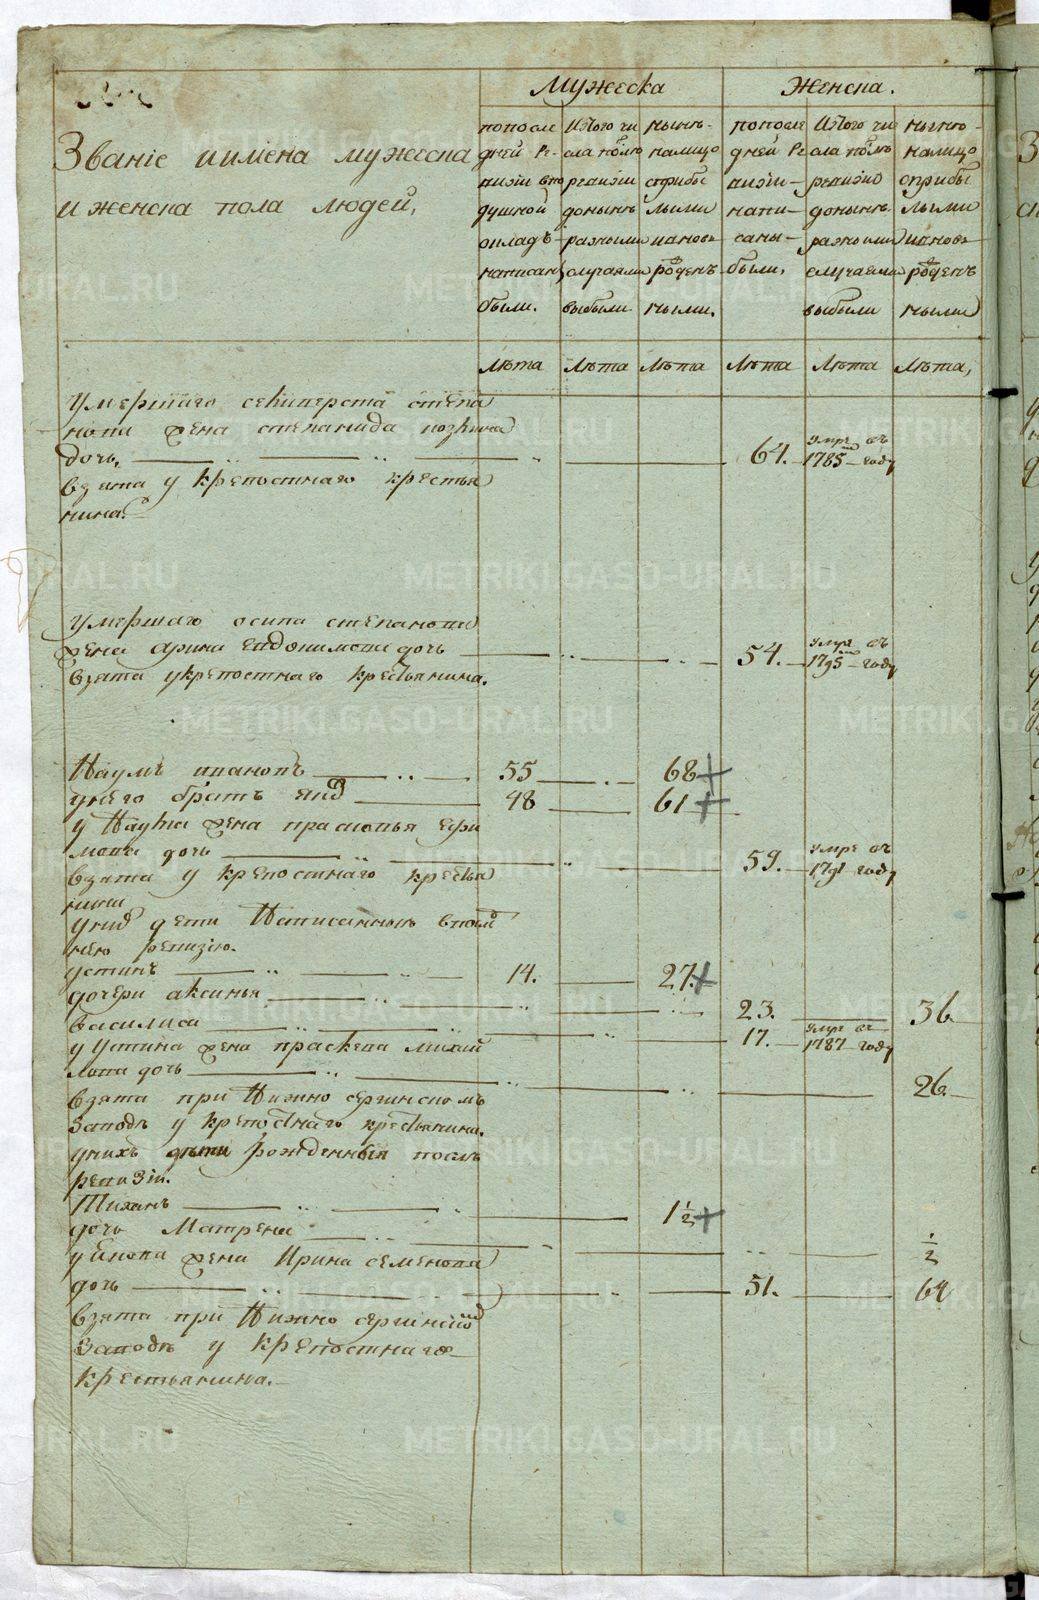 Мужеска
Женска.
Званіе иимена мужеска
и женска пола людей,
попосле
дней Ре
визіи впо
душной
окладъ
написаны
были.
Изтого чи
сла послѣ
ревизіи
донынѣ
разными
случаями
выбыли
нынѣ
налицо
сприбы
лыми
иновь
рожден
ными.
попосле
дней Ре
визіи
напи
саны
были.
Изтого чи
сла послѣ
ревизіи
донынѣ
разными
случаями
выбыли
нынѣ
налицо
сприбы
лыми
иновь
рожден
ными
лѣта лѣта лѣта лѣта лѣта лѣта,
умершаго секлиерста степа
нова жена степанида козмина
дочь, 64. умре въ 1785 году
взята у крепостнаго крестья
нина.
умершаго осипа степанова
жена арина евдокимова дочь 54. умре въ 1795 году
взята укрепостнаго крестьянина.
Наумъ ивановъ 55 68
унего братъ 48 61
у Наума жена прасковья ефи
мова дочь 59. умре въ 1791 году
взята у крепостнаго крестья
нина
уних дети Написанные впослѣд
нею ревизію.
устинъ 14. 27.
дочери аксинья 23. 36
василиса 17. умре въ 1787 году
у устина жена праскева михай
лова дочь 26.
взята при Нижно сергинскомъ
заводѣ у крепостнаго крестьянина.
унихъ дѣти рожденныя послѣ
ревизіи.
Тиханъ 1½
дочь Матрена ½
у жена Ирина семенова
дочь 51. 64
взята при Нижно сергинском
заводѣ у крепостнаго
крестьянина.
METRIKI.GASO-URAL.RU